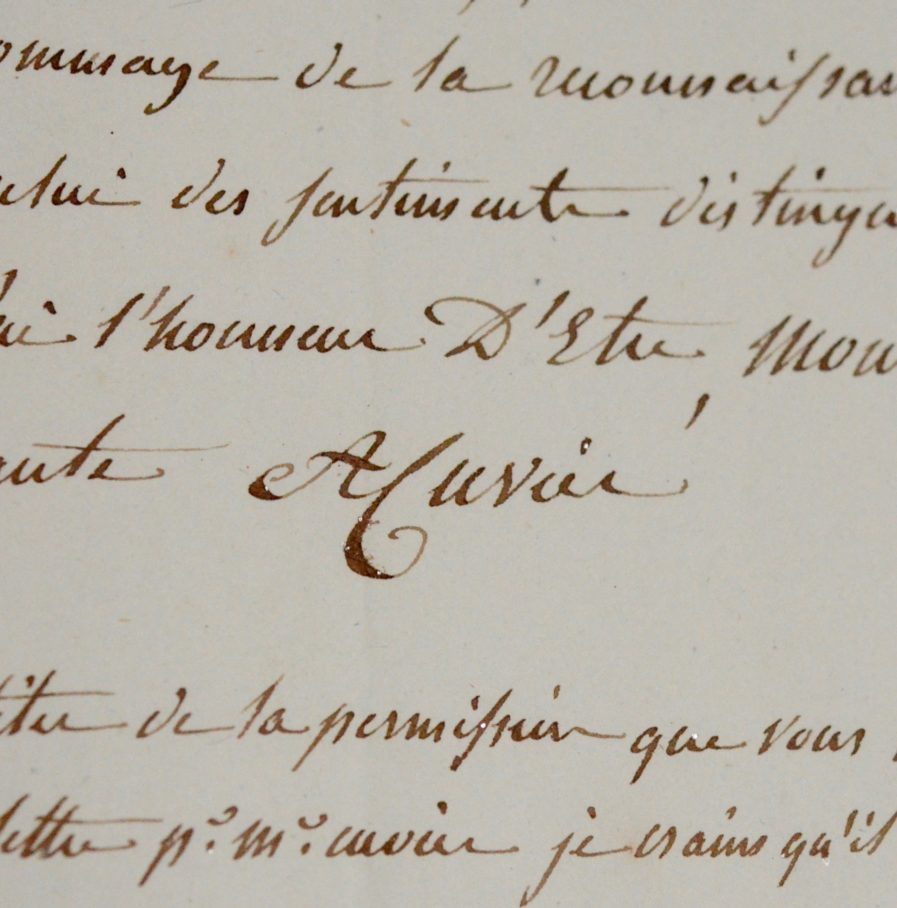 ommage de la reconnaissan
celui des sentiments distingu
ai l'honneur D'Etre, Mon
ante ACuvier
fiter de la permission que vous
lettre pr. mr. cuvier je crains qu'il